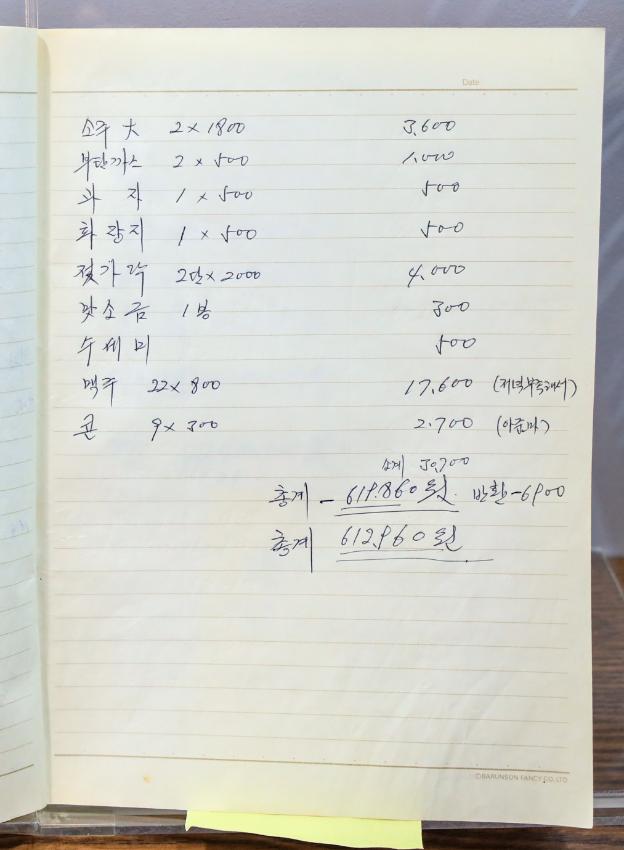 Date
소주 大 2×1800 3,600
부탄까스 2×500 1,000
과자 1×500 500
화장지 1×500 500
젓가락 2단×2000 4,000
맛소금 1봉 300
수세미 500
맥주 22×800 17,600 (저녁부족해서)
콘 9×300 2.700 (아줌마)
소계 30,700
총계 - 619.860원. 반환-6900
총계 612,960원
©BARUNSON FANCY.CO.,LTD